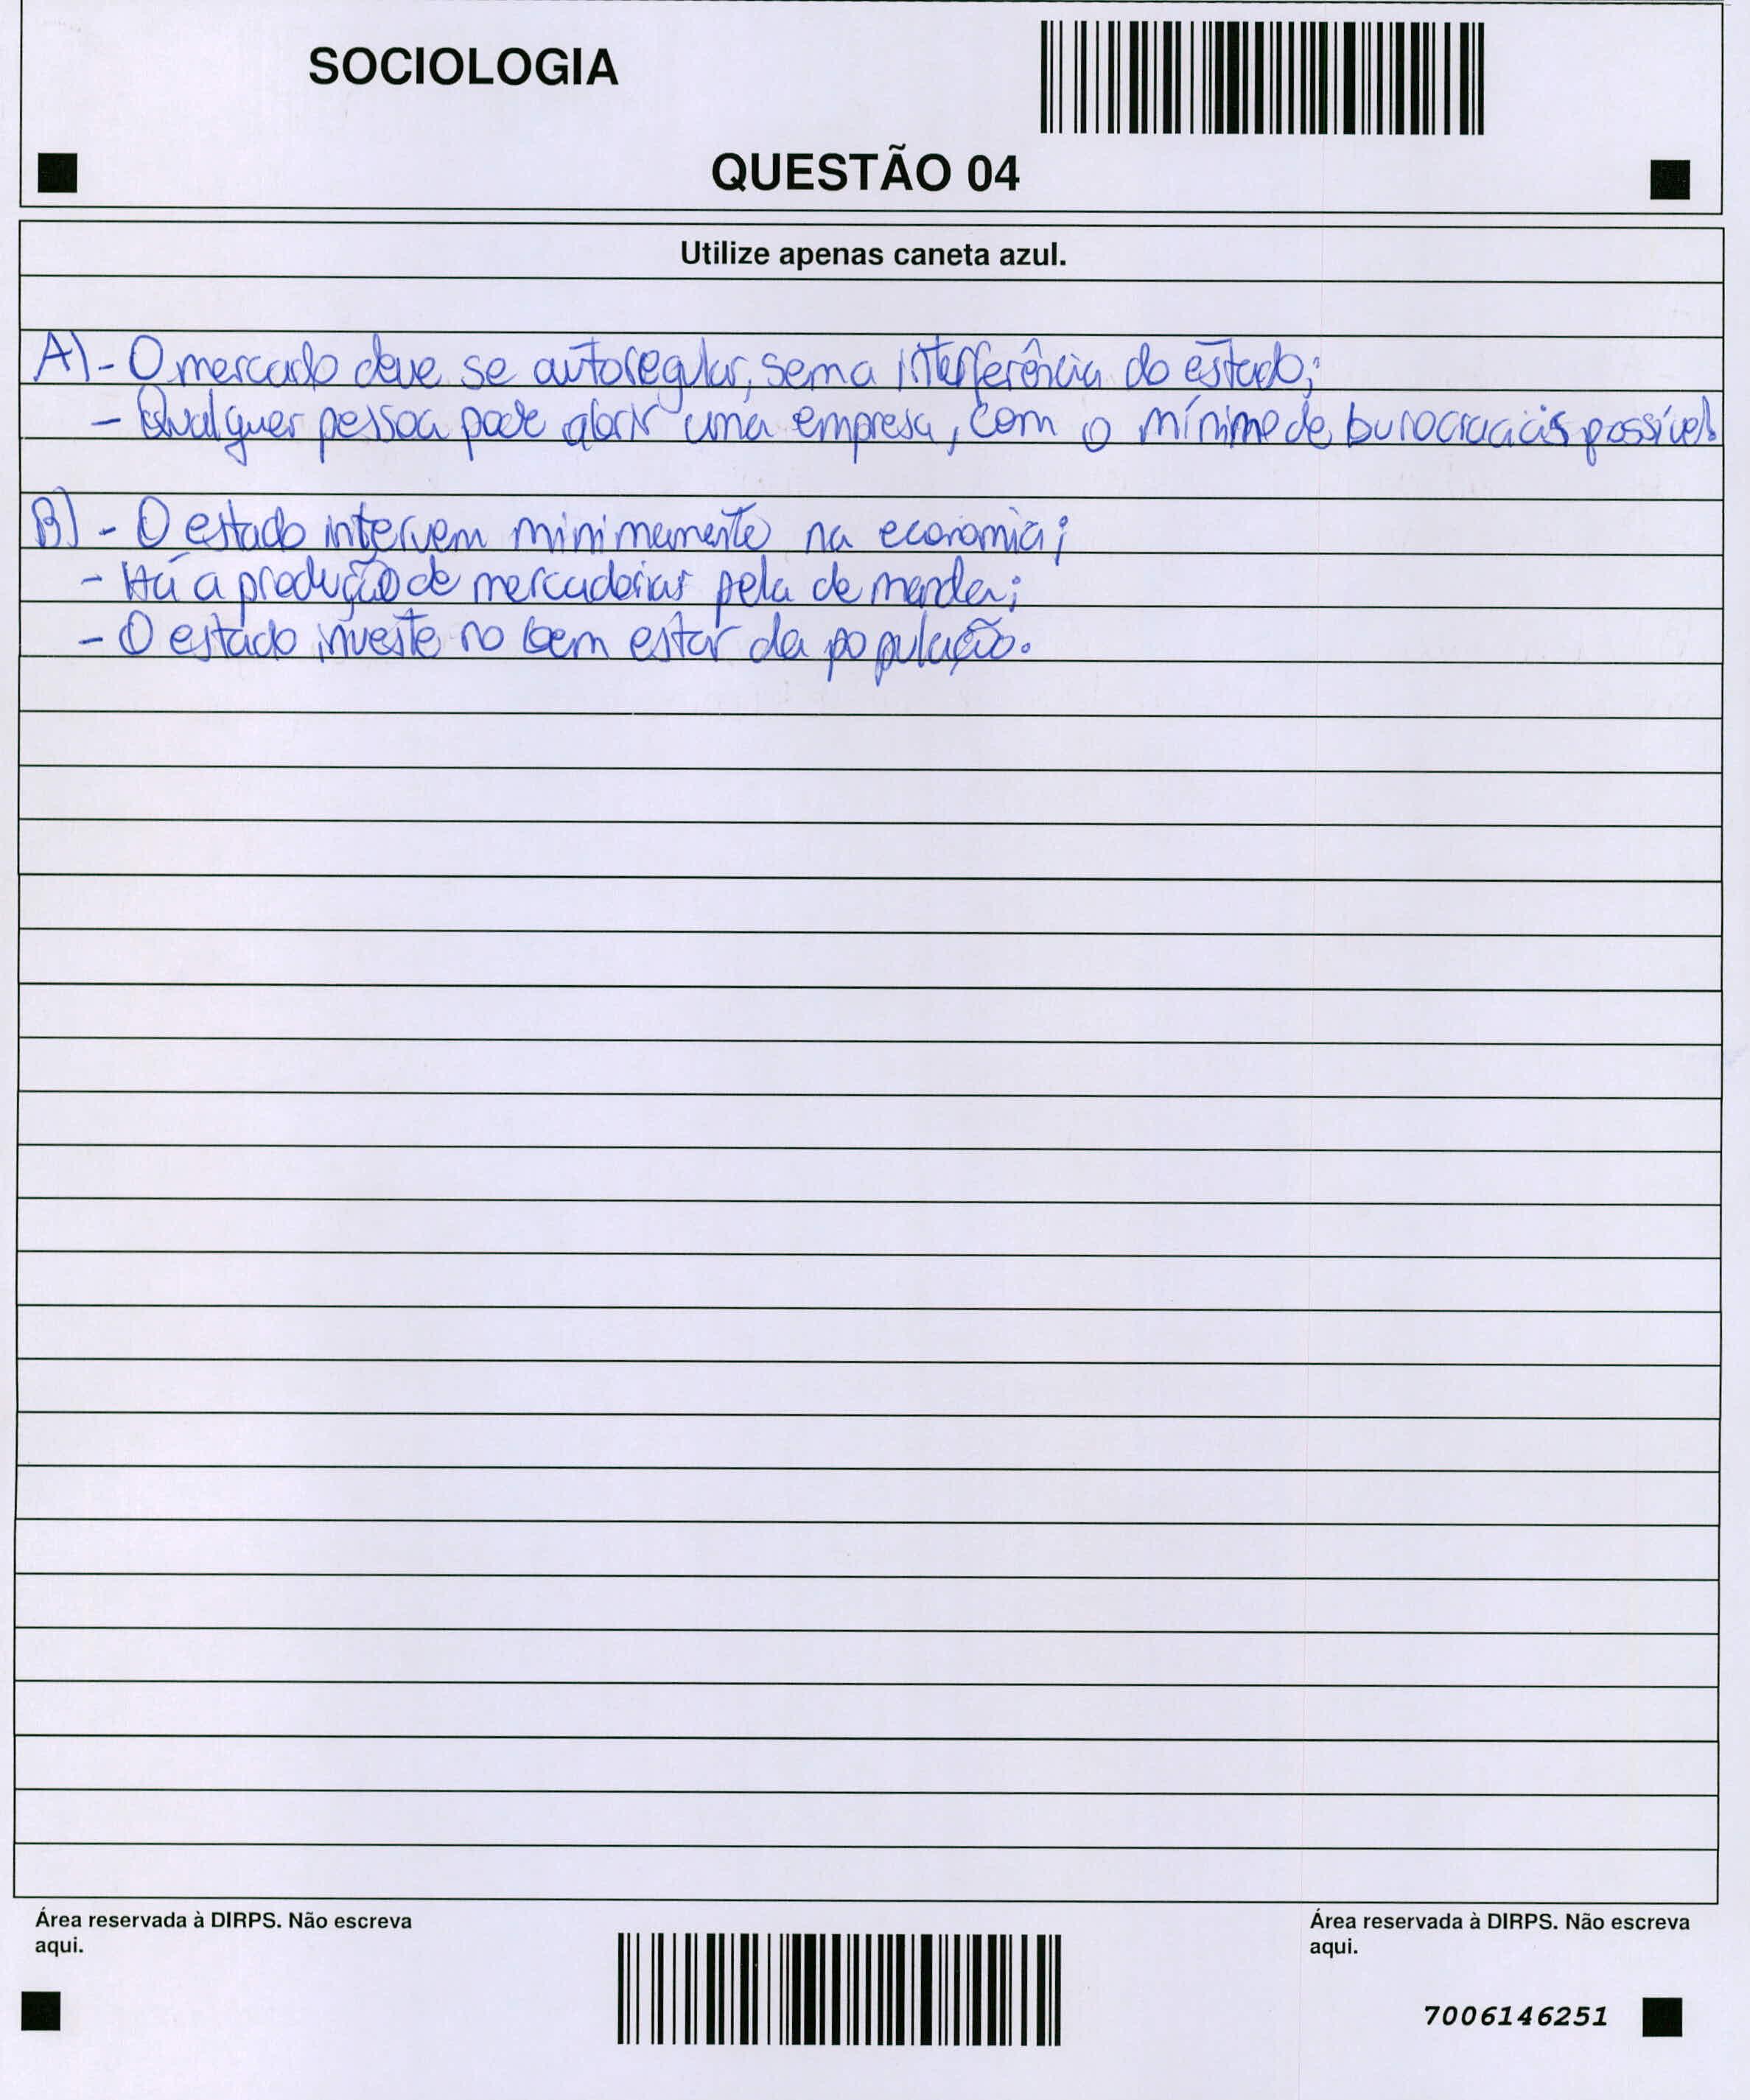 SOCIOLOGIA
QUESTÃO 04
Utilize apenas caneta azul.
A) - O mercado deve se autoregular, sem a interferência do estado;
- Qualquer pessoa pode abrir uma empresa, com o mínimo de burocracias possível
B) - O estado intervem minimamente na economia;
- Há a produção de mercadorias pela demanda;
- O estado investe no bem estar da população.
Área reservada à DIRPS. Não escreva
aqui.
Área reservada à DIRPS. Não escreva
aqui.
7006146251